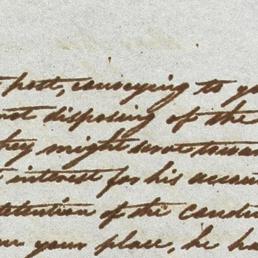 post, conveying to yo
not disposing of the
they might
t interest for his accou
tention of the condu
your place, he ha